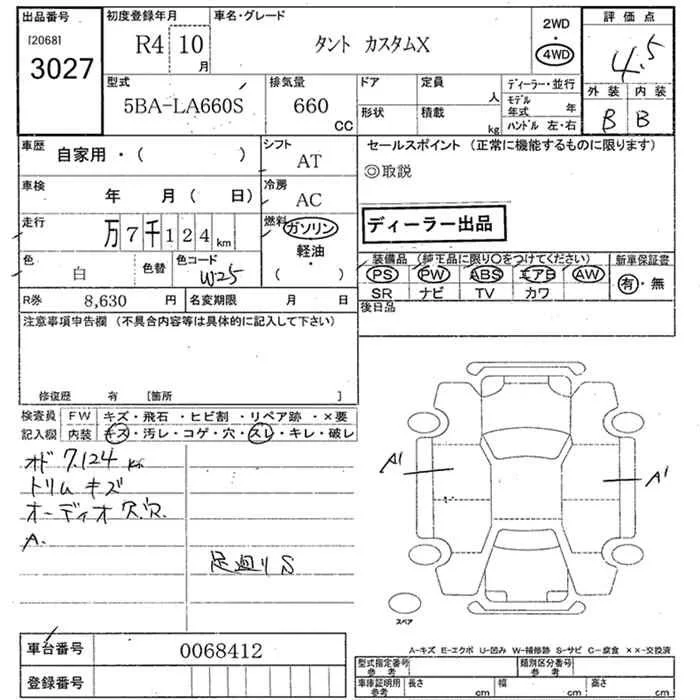 出品番号 初度登録年月 車名・グレード 2WD 評価点
[2068] R4 10月 タント カスタムX ・ 4.5
3027 4WD
型式 排気量 ドア 定員 人 ディーラー・並行 外装 内装
5BA-LA660S 660 CC 形状 積載 kg モデル年式 年 B B
ハンドル 左・右
車歴 自家用・( ) シフト AT セールスポイント (正常に機能するものに限ります)
◎取説
車検 年 月 ( 日) 冷房 AC
走行 万 7 千 1 2 4 km 燃料 ガソリン・軽油・( ) ディーラー出品
色 白 色替 色コード W25 装備品 (純正品に限り○をつけてください) 新車保証書
PS PW ABS エアB AW 有・無
SR ナビ TV カワ
R券 8,630 円 名変期限 月 日 後日品
注意事項申告欄 (不具合内容等は具体的に記入して下さい)
修復歴 有 [箇所 ]
検査員 FW キズ・飛石・ヒビ割・リペア跡・×要
記入欄 内装 キズ・汚レ・コゲ・穴・スレ・キレ・破レ
オド 7.124 km
トリムキズ
オーディオ
A.
足廻りS
A1 A1
スペア
A-キズ E-エクボ U-凹み W-補修跡 S-サビ C-腐食 ××-交換済
車台番号 0068412
登録番号
型式指定番号 参考 類別区分番号 参考
車庫証明用 参考 長さ cm 幅 cm 高さ cm